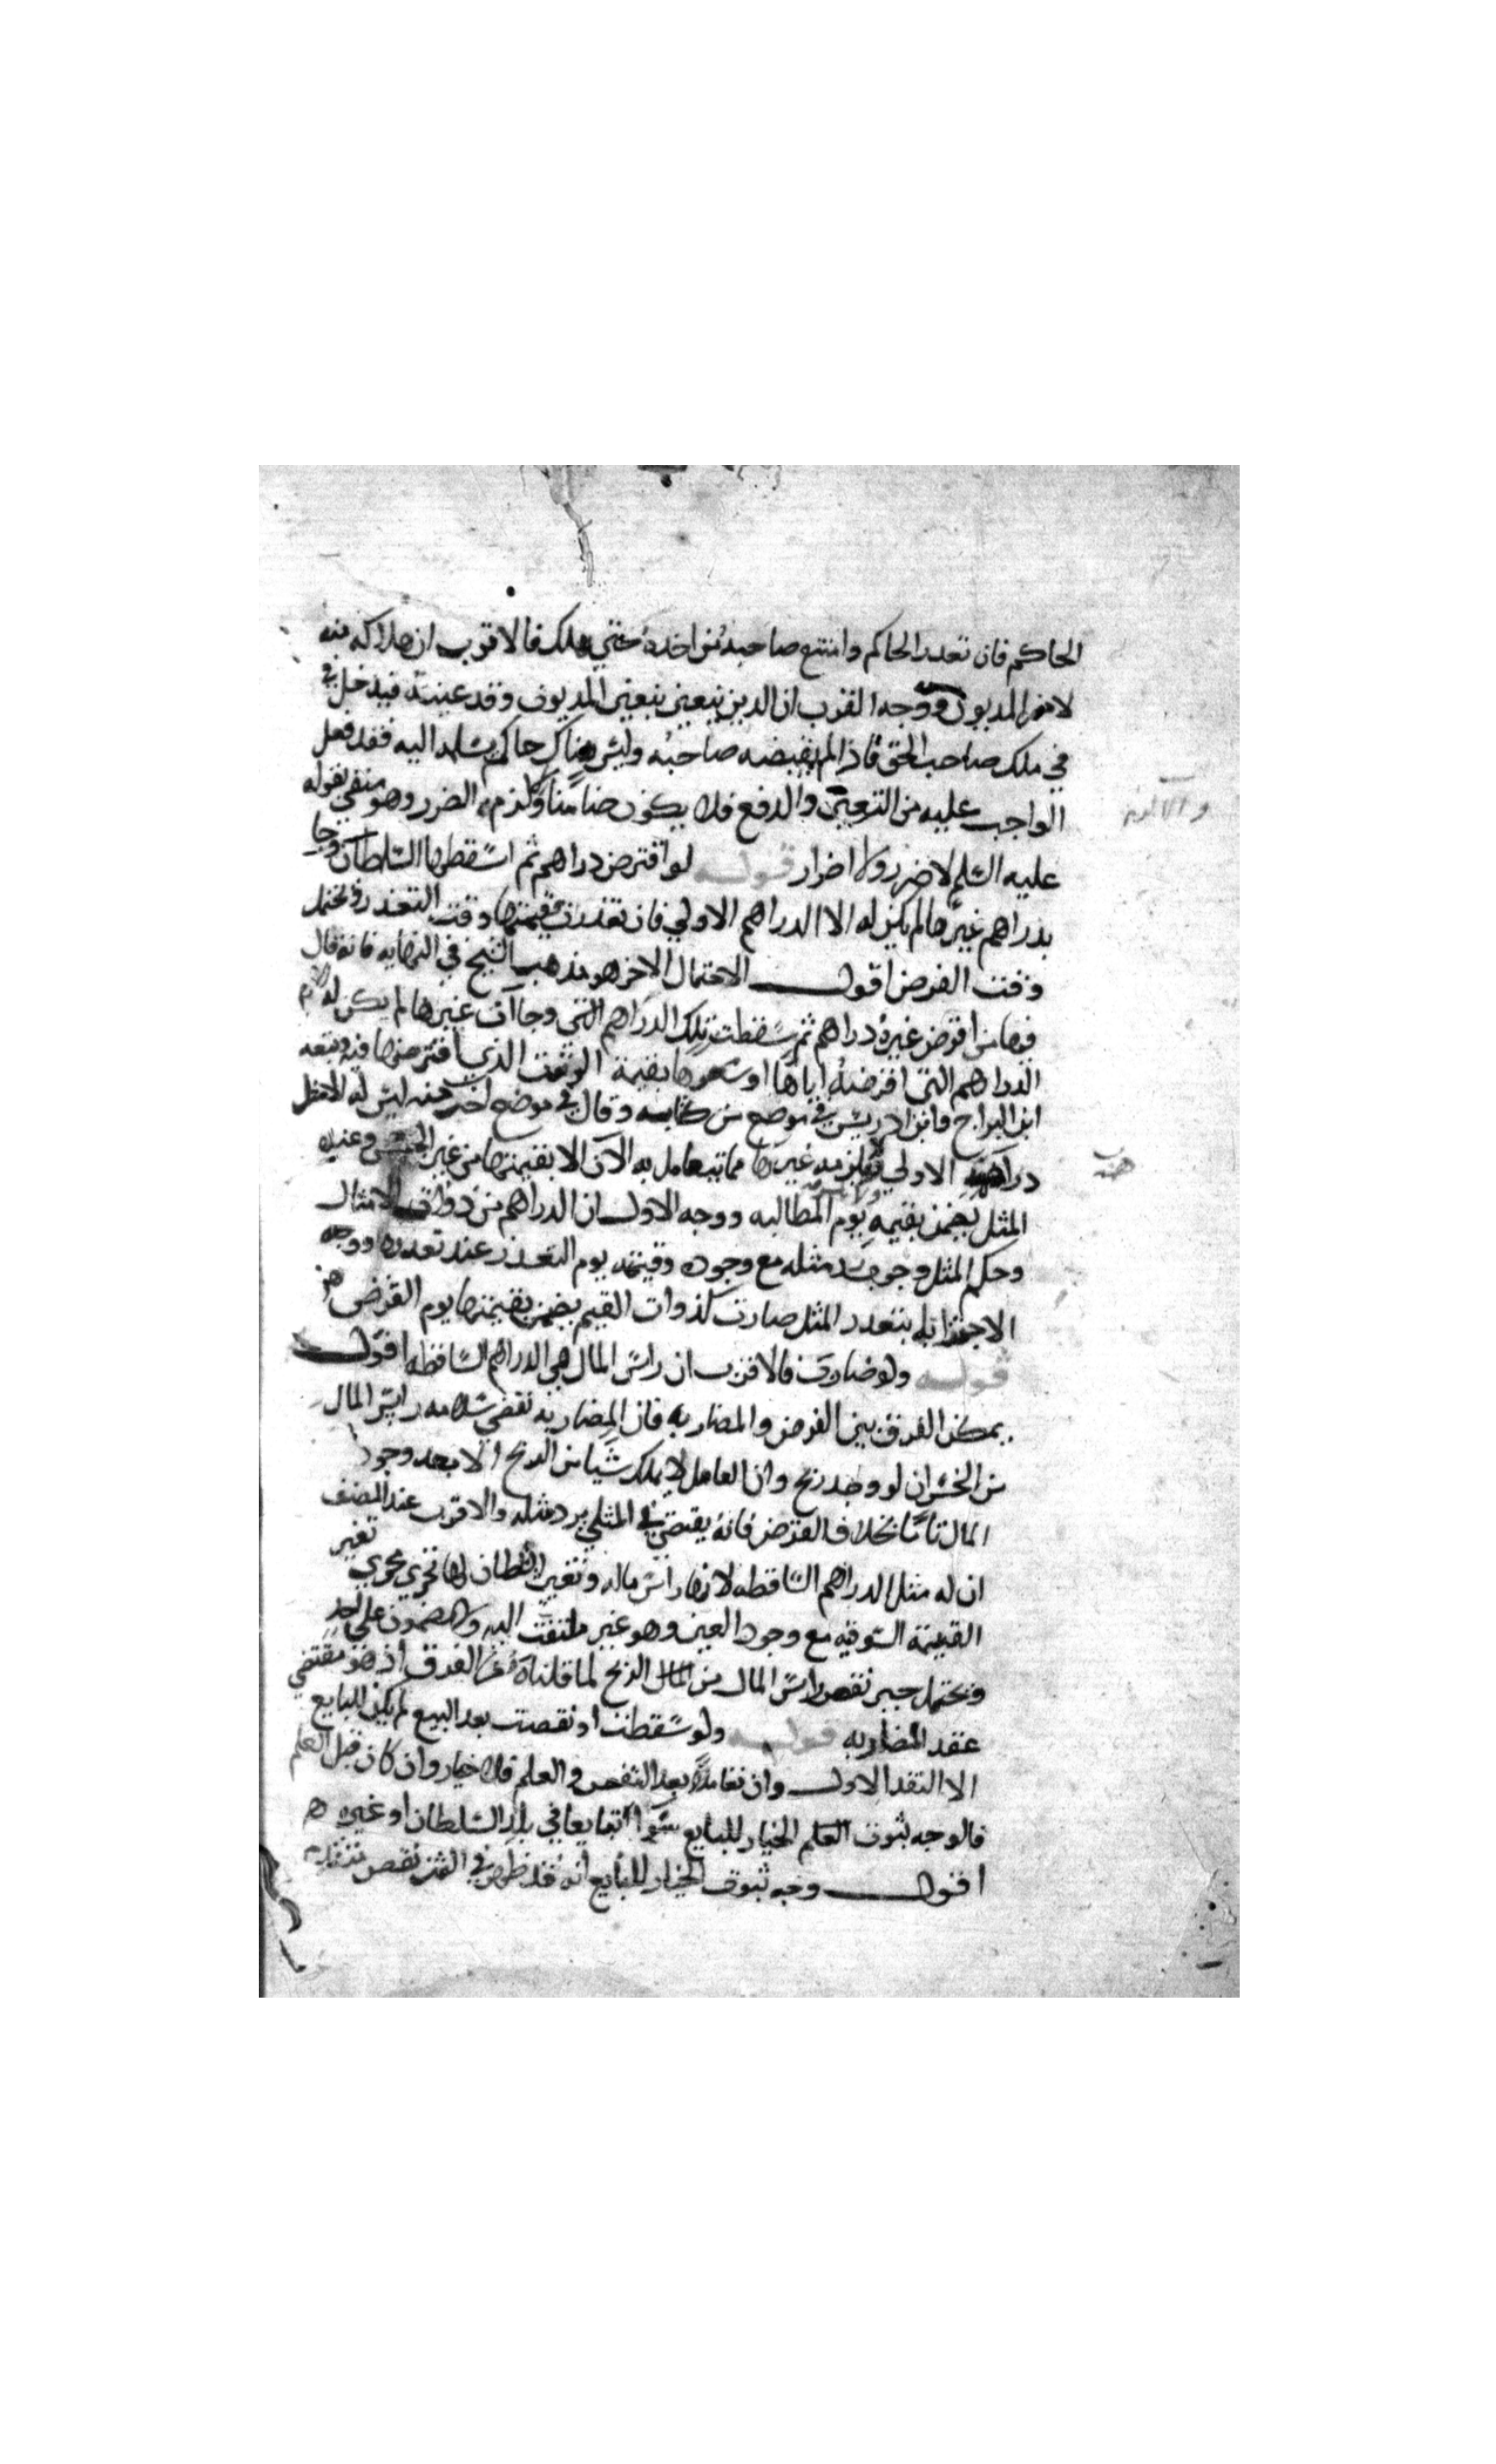 الحاكم فان تعذر الحاكم وامتنع صاحبه من اخذه حتي هلك فالاقرب ان هلاكه منه
لا من المديون ووجه القرب ان الدين يتعين بتعين المديون وقد عينه فيدخل في
في ملك صاحب الحق فاذا لم يقبضه صاحبه وليس هناك حاكم يسلمه اليه فقد فعل
الواجب عليه من التعيين والدفع فلا يكون ضامنا والا لزم الضرر وهو منفي بقوله
عليه السلم لا ضرر ولا اضرار قوله لو اقترض دراهم ثم اسقطها السلطان وجا
بدراهم غيرها لم يكن له الا الدراهم الاولي فان تعذرت فقيمتها وقت التعذر ويحتمل
وقت القرض اقول الاحتمال الاخر هو مذهب الشيخ في النهايه فانه قال
فيها من اقرض غيره دراهم ثم سقطت تلك الدراهم التي وجاات غيرها لم يكن له
الدراهم التي اقرضه اياها او سعرها بقيمة الوقت الذي اقترضها فيه وتبعه
ابن البراج وابن ادريس في موضع من كتابه وقال في موضع اخر منه ليس له الا مثل
دراهمه الاولي ولا يلزمه غيرها مما يتعامل به الآن الا بقيمتها من غير الجنس وعند
المثل يضمن بقيمه يوم المطالبه ووجه الاول ان الدراهم من ذوات الامثال
وحكم المثل وجوب رد مثله مع وجوده وقيمته يوم التعذر عند تعذرها ووجه
الاخر انه بتعذر المثل صارت كذوات القيم يضمن بقيمتها يوم القرض
قوله ولو ضارب فالاقرب ان راس المال هي الدراهم الساقطه اقول
يمكن الفرق بين القرض والمضاربه فان المضاربه تقتضي سلامه راس المال
من الخسران لو وجد ربح وان العامل لا يملك شيا من الربح الا بعد وجود
المال تاما بخلاف القرض فانه يقتضي في المثلي يرد مثله والاقرب عند المصنف
ان له مثل الدراهم الساقطه لانها راس ماله وتغير السلطان لها تجري مجري تغير
القيمة السوقيه مع وجود العين وهو غير ملتفت اليه ولا مضمون علي احد
ويحتمل جبر نقص راس المال من الربح لما قلناه من الفرق اذ هو مقتضي
عقد المضاربه قوله ولو سقطت او نقصت بعد البيع لم يكن للبايع
الا النقد الاول وان تعاملا بعد النقص والعلم فلا خيار وان كان قبل العلم
فالوجه ثبوت العلم الخيار للبايع سوا تبايعا في بلد السلطان او غيره
اقول وجه ثبوت الخيار للبايع انه قد ظهر في الثمن نقص